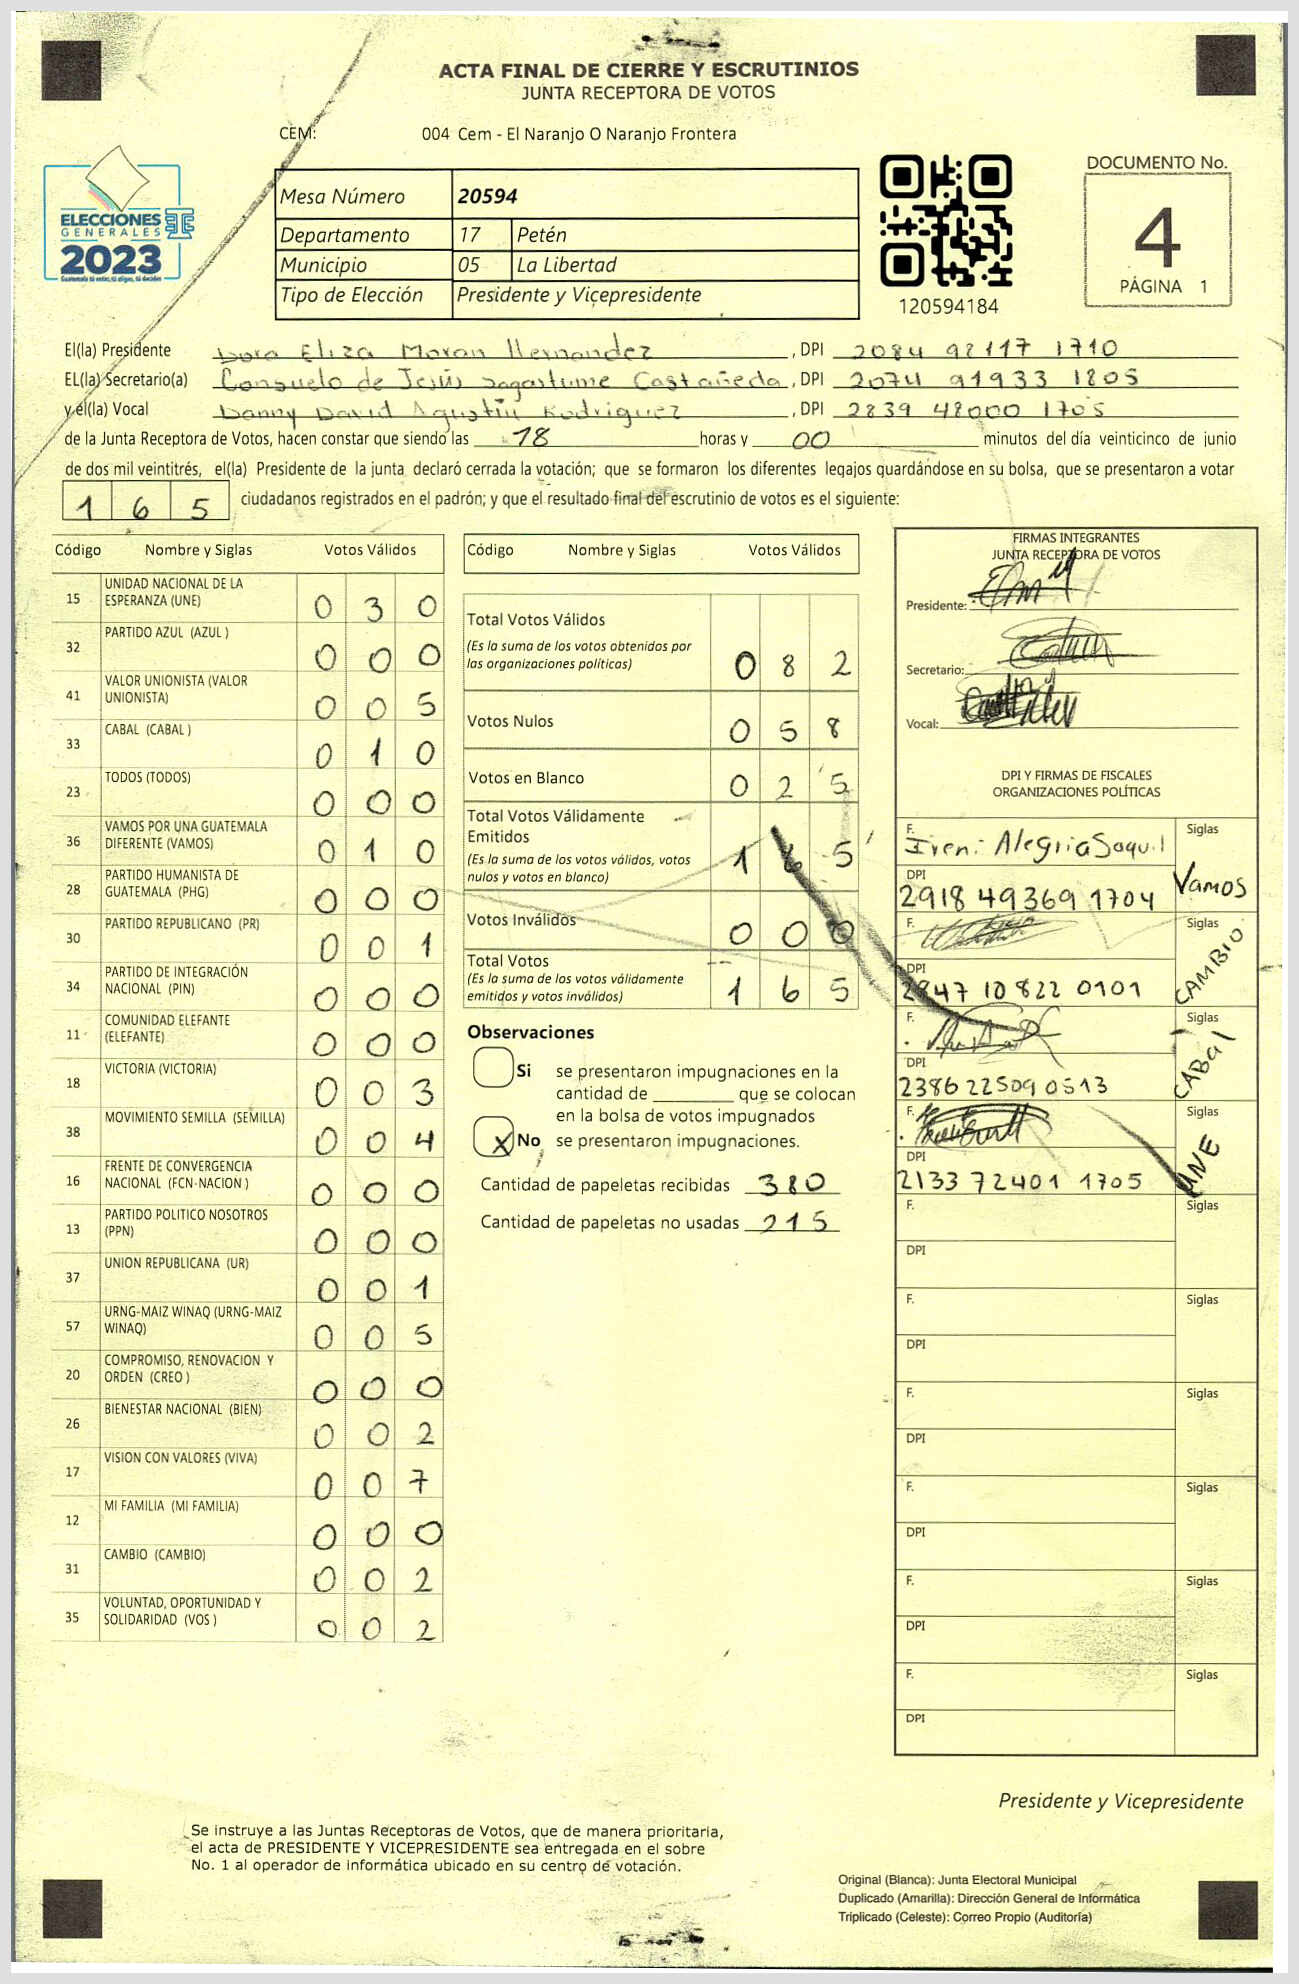 ACTA FINAL DE CIERRE Y ESCRUTINIOS
JUNTA RECEPTORA DE VOTOS
CEM: 004 Cem - El Naranjo O Naranjo Frontera
ELECCIONES
GENERALES
2023
Guatemala tú votas, tú eliges, tú decides
Mesa Número 20594
Departamento 17 Petén
Municipio 05 La Libertad
Tipo de Elección Presidente y Vicepresidente
120594184
DOCUMENTO No.
4
PÁGINA 1
El(la) Presidente Dora Eliza Moran Hernandez, DPI 2084 92117 1710
EL(la) Secretario(a) Consuelo de Jesús Sagastume Castañeda, DPI 2074 91933 1805
y él(la) Vocal Danny David Agustín Rodriguez, DPI 2839 48000 1705
de la Junta Receptora de Votos, hacen constar que siendo las 18 horas y 00 minutos del día veinticinco de junio
de dos mil veintitrés, el(la) Presidente de la junta declaró cerrada la votación; que se formaron los diferentes legajos guardándose en su bolsa, que se presentaron a votar
165 ciudadanos registrados en el padrón; y que el resultado final del escrutinio de votos es el siguiente:
Código Nombre y Siglas Votos Válidos
15 UNIDAD NACIONAL DE LA
ESPERANZA (UNE) 0 3 0
32 PARTIDO AZUL (AZUL ) 0 0 0
41 VALOR UNIONISTA (VALOR
UNIONISTA) 0 0 5
33 CABAL (CABAL ) 0 1 0
23 TODOS (TODOS) 0 0 0
36 VAMOS POR UNA GUATEMALA
DIFERENTE (VAMOS) 0 1 0
28 PARTIDO HUMANISTA DE
GUATEMALA (PHG) 0 0 0
30 PARTIDO REPUBLICANO (PR) 0 0 1
34 PARTIDO DE INTEGRACIÓN
NACIONAL (PIN) 0 0 0
11 COMUNIDAD ELEFANTE
(ELEFANTE) 0 0 0
18 VICTORIA (VICTORIA) 0 0 3
38 MOVIMIENTO SEMILLA (SEMILLA) 0 0 4
16 FRENTE DE CONVERGENCIA
NACIONAL (FCN-NACION ) 0 0 0
13 PARTIDO POLITICO NOSOTROS
(PPN) 0 0 0
37 UNION REPUBLICANA (UR) 0 0 1
57 URNG-MAIZ WINAQ (URNG-MAIZ
WINAQ) 0 0 5
20 COMPROMISO, RENOVACION Y
ORDEN (CREO ) 0 0 0
26 BIENESTAR NACIONAL (BIEN) 0 0 2
17 VISION CON VALORES (VIVA) 0 0 7
12 MI FAMILIA (MI FAMILIA) 0 0 0
31 CAMBIO (CAMBIO) 0 0 2
35 VOLUNTAD, OPORTUNIDAD Y
SOLIDARIDAD (VOS ) 0 0 2
Código Nombre y Siglas Votos Válidos
Total Votos Válidos
(Es la suma de los votos obtenidos por
las organizaciones políticas) 0 8 2
Votos Nulos 0 5 8
Votos en Blanco 0 2 5
Total Votos Válidamente
Emitidos
(Es la suma de los votos válidos, votos
nulos y votos en blanco) 1 6 5
Votos Inválidos 0 0 0
Total Votos
(Es la suma de los votos válidamente
emitidos y votos inválidos) 1 6 5
Observaciones
Si se presentaron impugnaciones en la
cantidad de ________ que se colocan
en la bolsa de votos impugnados
X No se presentaron impugnaciones.
Cantidad de papeletas recibidas 380
Cantidad de papeletas no usadas 215
FIRMAS INTEGRANTES
JUNTA RECEPTORA DE VOTOS
Presidente:
Secretario:
Vocal:
DPI Y FIRMAS DE FISCALES
ORGANIZACIONES POLÍTICAS
F. Siglas
DPI Vamos
2918 49369 1704
F. Siglas
DPI CAMBIO
2947 10822 0101
F. Siglas
DPI CABAL
2386 22509 0513
F. Siglas
DPI UNE
2133 72401 1705
F. Siglas
DPI
F. Siglas
DPI
F. Siglas
DPI
F. Siglas
DPI
F. Siglas
DPI
F. Siglas
DPI
Presidente y Vicepresidente
Se instruye a las Juntas Receptoras de Votos, que de manera prioritaria,
el acta de PRESIDENTE Y VICEPRESIDENTE sea entregada en el sobre
No. 1 al operador de informática ubicado en su centro de votación.
Original (Blanca): Junta Electoral Municipal
Duplicado (Amarilla): Dirección General de Informática
Triplicado (Celeste): Correo Propio (Auditoría)